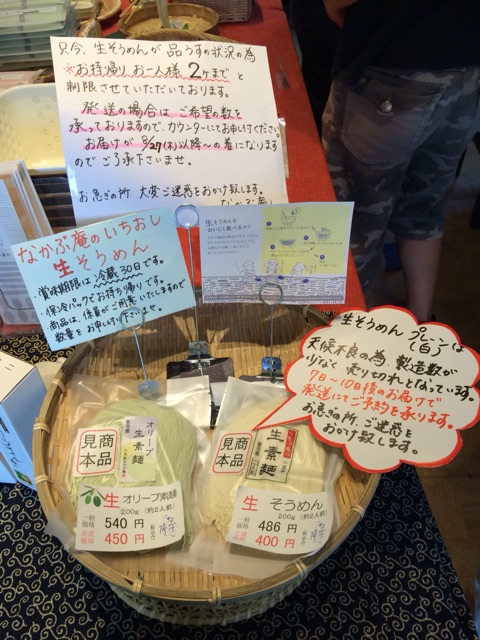 只今、生そうめんが品うすの状況の為
※お持帰りお一人様 2ケまでと
制限させていただいております。
発送の場合は、ご希望の数を
承っておりますので、カウンターにてお申し付ください。
お届けが 8/27(木)以降〜の着になります
のでご了承下さいませ。
お急ぎの所 大変ご迷惑をおかけ致します。
なかぶ庵
なかぶ庵のいちおし
生そうめん
・賞味期限は冷蔵30日です。
・保冷パックでお持ち帰りです。
商品は、係員がご用意いたしますので
数量をお申し付け下さいませ。
生そうめんを
おいしく食べるコツ
生そうめん プレーン(白)は
天候不良の為、製造数が
少なく 売り切れとなっています。
7日〜10日後のお届けで
発送にてご予約を承ります。
お急ぎの所、ご迷惑を
おかけ致します。
オリーブ
生素麺
見本
商品
生 オリーブ素麺
200g (約2人前)
一般価格 540 円
450 円
生素麺
見本
商品
生 そうめん
200g (約2人前)
一般価格 486 円
400 円